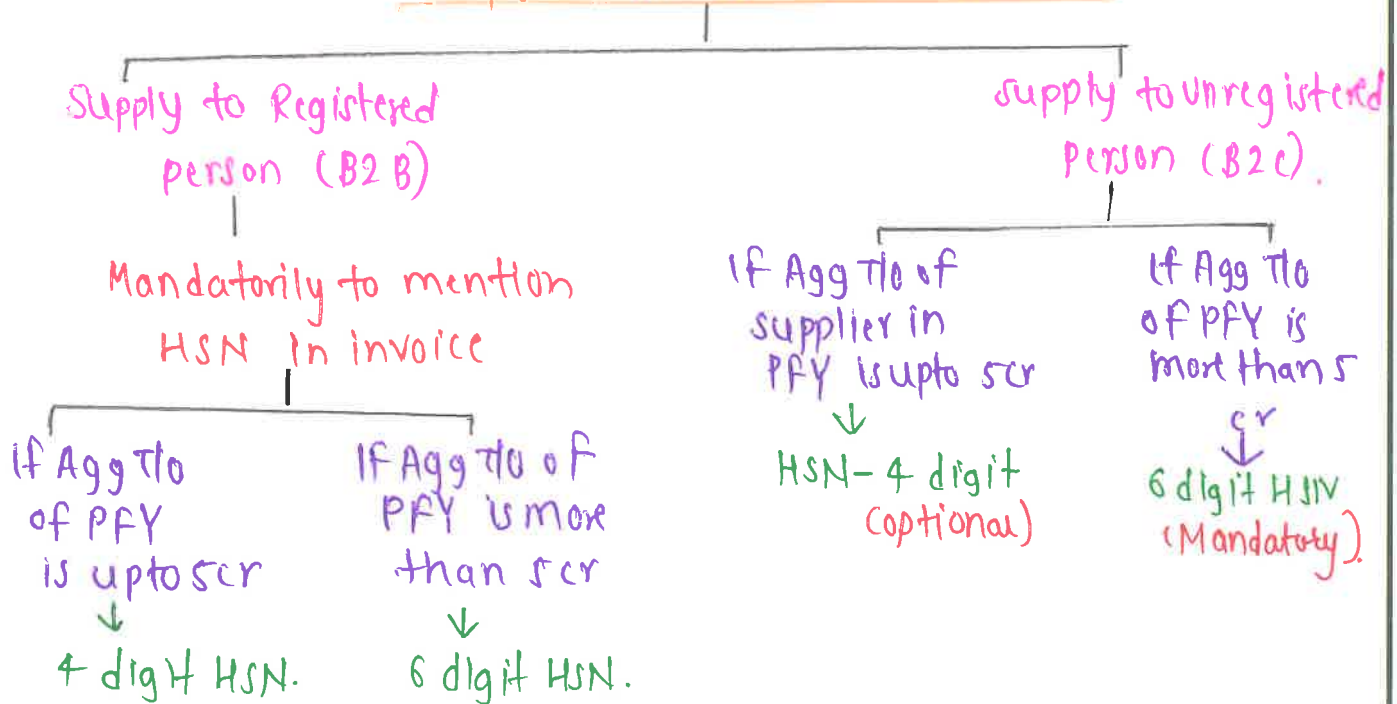 Supply to Registered
person (B2B)
Mandatorily to mention
HSN in invoice
if Agg T/o
of PFY
is upto 5cr
↓
4 digit HSN.
If Agg T/o of
PFY is more
than 5cr
↓
6 digit HSN.
supply to unregistered
Person (B2C).
If Agg T/o of
supplier in
PFY is upto 5cr
↓
HSN-4 digit
(optional)
If Agg T/o
of PFY is
more than 5
cr
↓
6 digit HSN
(Mandatory).